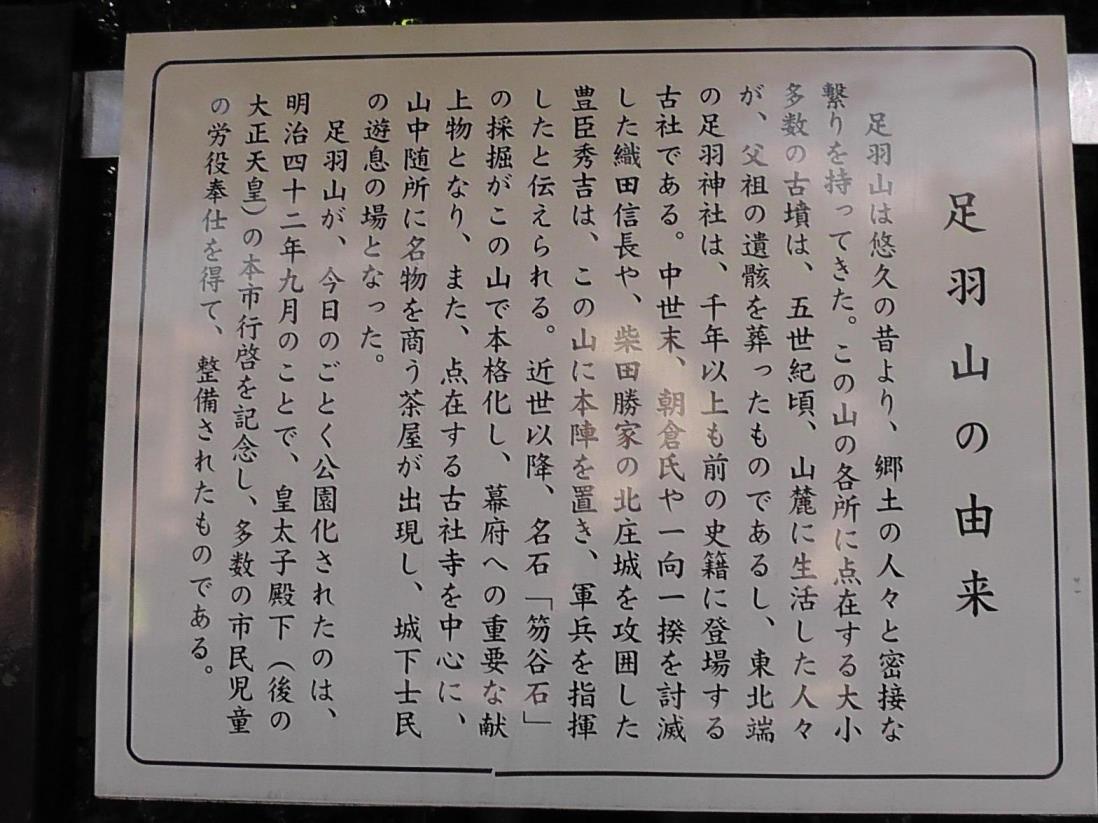 足羽山の由来
足羽山は悠久の昔より、郷土の人々と密接な
繋りを持ってきた。この山の各所に点在する大小
多数の古墳は、五世紀頃、山麓に生活した人々
が、父祖の遺骸を葬ったものであるし、東北端
の足羽神社は、千年以上も前の史籍に登場する
古社である。中世末、朝倉氏や一向一揆を討滅
した織田信長や、柴田勝家の北庄城を攻囲した
豊臣秀吉は、この山に本陣を置き、軍兵を指揮
したと伝えられる。近世以降、名石「笏谷石」
の採掘がこの山で本格化し、幕府への重要な献
上物となり、また、点在する古社寺を中心に、
山中随所に名物を商う茶屋が出現し、城下士民
の遊息の場となった。
足羽山が、今日のごとく公園化されたのは、
明治四十二年九月のことで、皇太子殿下（後の
大正天皇）の本市行啓を記念し、多数の市民児童
の労役奉仕を得て、整備されたものである。